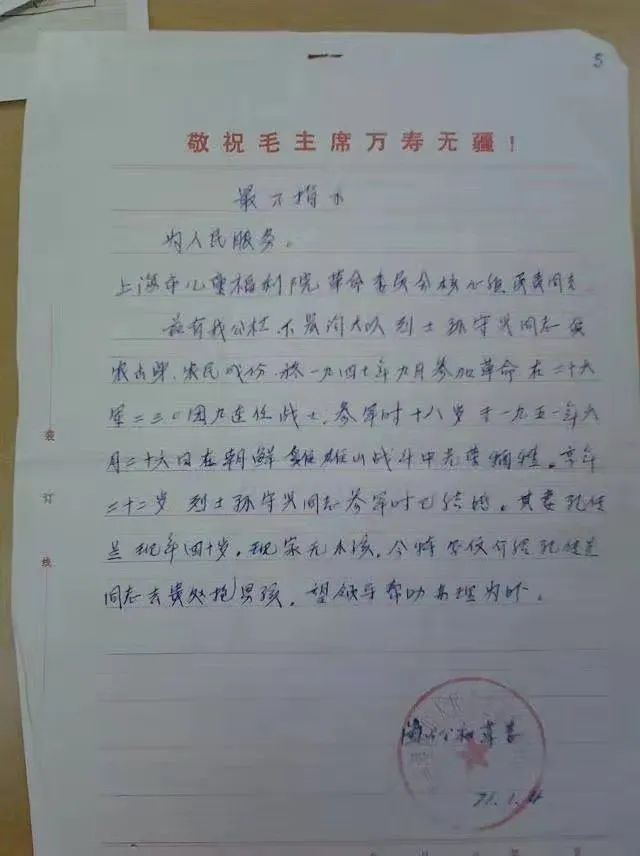 5
敬祝毛主席万寿无疆！
最高指示
为人民服务。
上海市儿童福利院革命委员会核心组负责同志
兹有我公社 大队烈士孙守兴同志
农出身、农民成份，于一九四七年九月参加革命在二十六
军二三〇团九连任战士，参军时十八岁于一九五一年六
月二十六日在朝鲜 雄山战斗中光荣牺牲。享年
二十二岁 烈士孙守兴同志参军时已结婚。其妻
兰现年四十岁，现家无小孩，今特 介绍
同志去贵处抱男孩，望领导帮助办理为盼。
装
订
线
公社革委
71.1.4
年 月 日 第 页